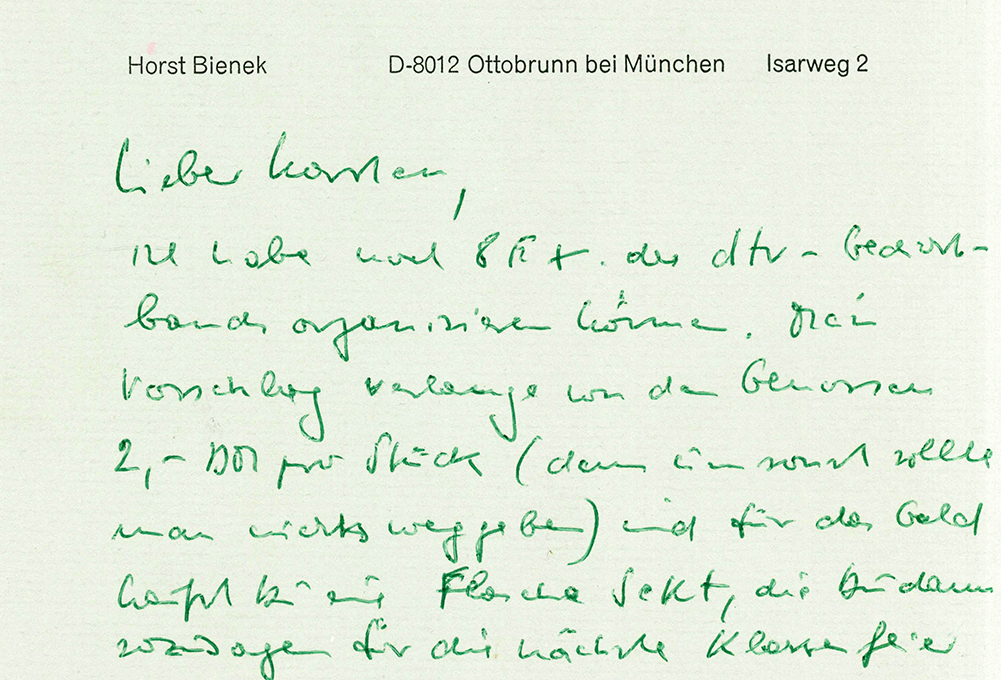 Horst Bienek D-8012 Ottobrunn bei München Isarweg 2
Lieber Karsten,
ich habe noch 8 Ex. des dtv-Gedicht-
bands organisieren können. Mein
Vorschlag verlange von den Genossen
2,- DM pro Stück (denn umsonst sollte
man nichts weggeben) und für das Geld
kaufst Du eine Flasche Sekt, die Du dann
sozusagen für die nächste Klassenfeier